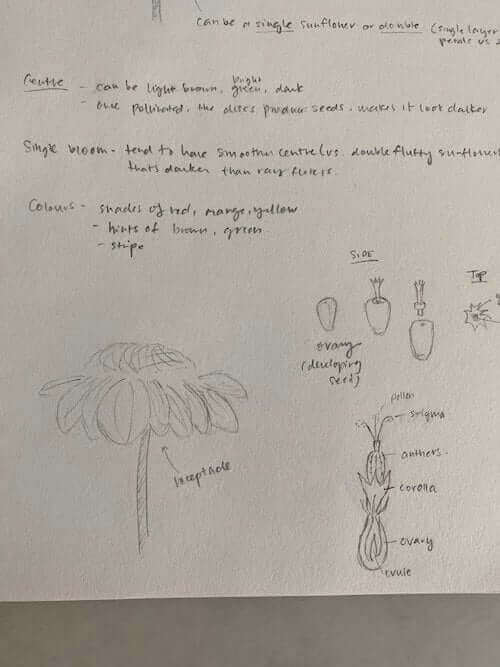 can be a single sunflower or double (single layer
petals vs
Centre - can be light brown, bright green, dark
- once pollinated, the discs produce seeds, makes it look darker
Single bloom - tend to have smooth centre (vs. double fluffy sunflower
that's darker than ray florets.
Colours - shades of red, orange, yellow
- hints of brown, green
- stripe
SIDE
Top
ovary
(developing
seed)
pollen
stigma
anthers
corolla
ovary
ovule